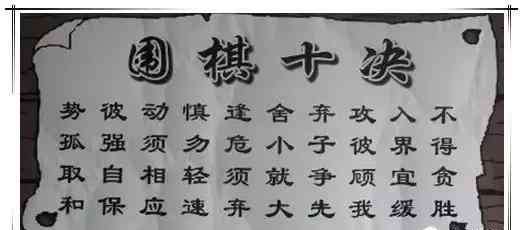 围棋十决
不得贪胜
入界宜缓
攻彼顾我
弃子争先
舍小就大
逢危须弃
慎勿轻速
动须相应
彼强自保
势孤取和